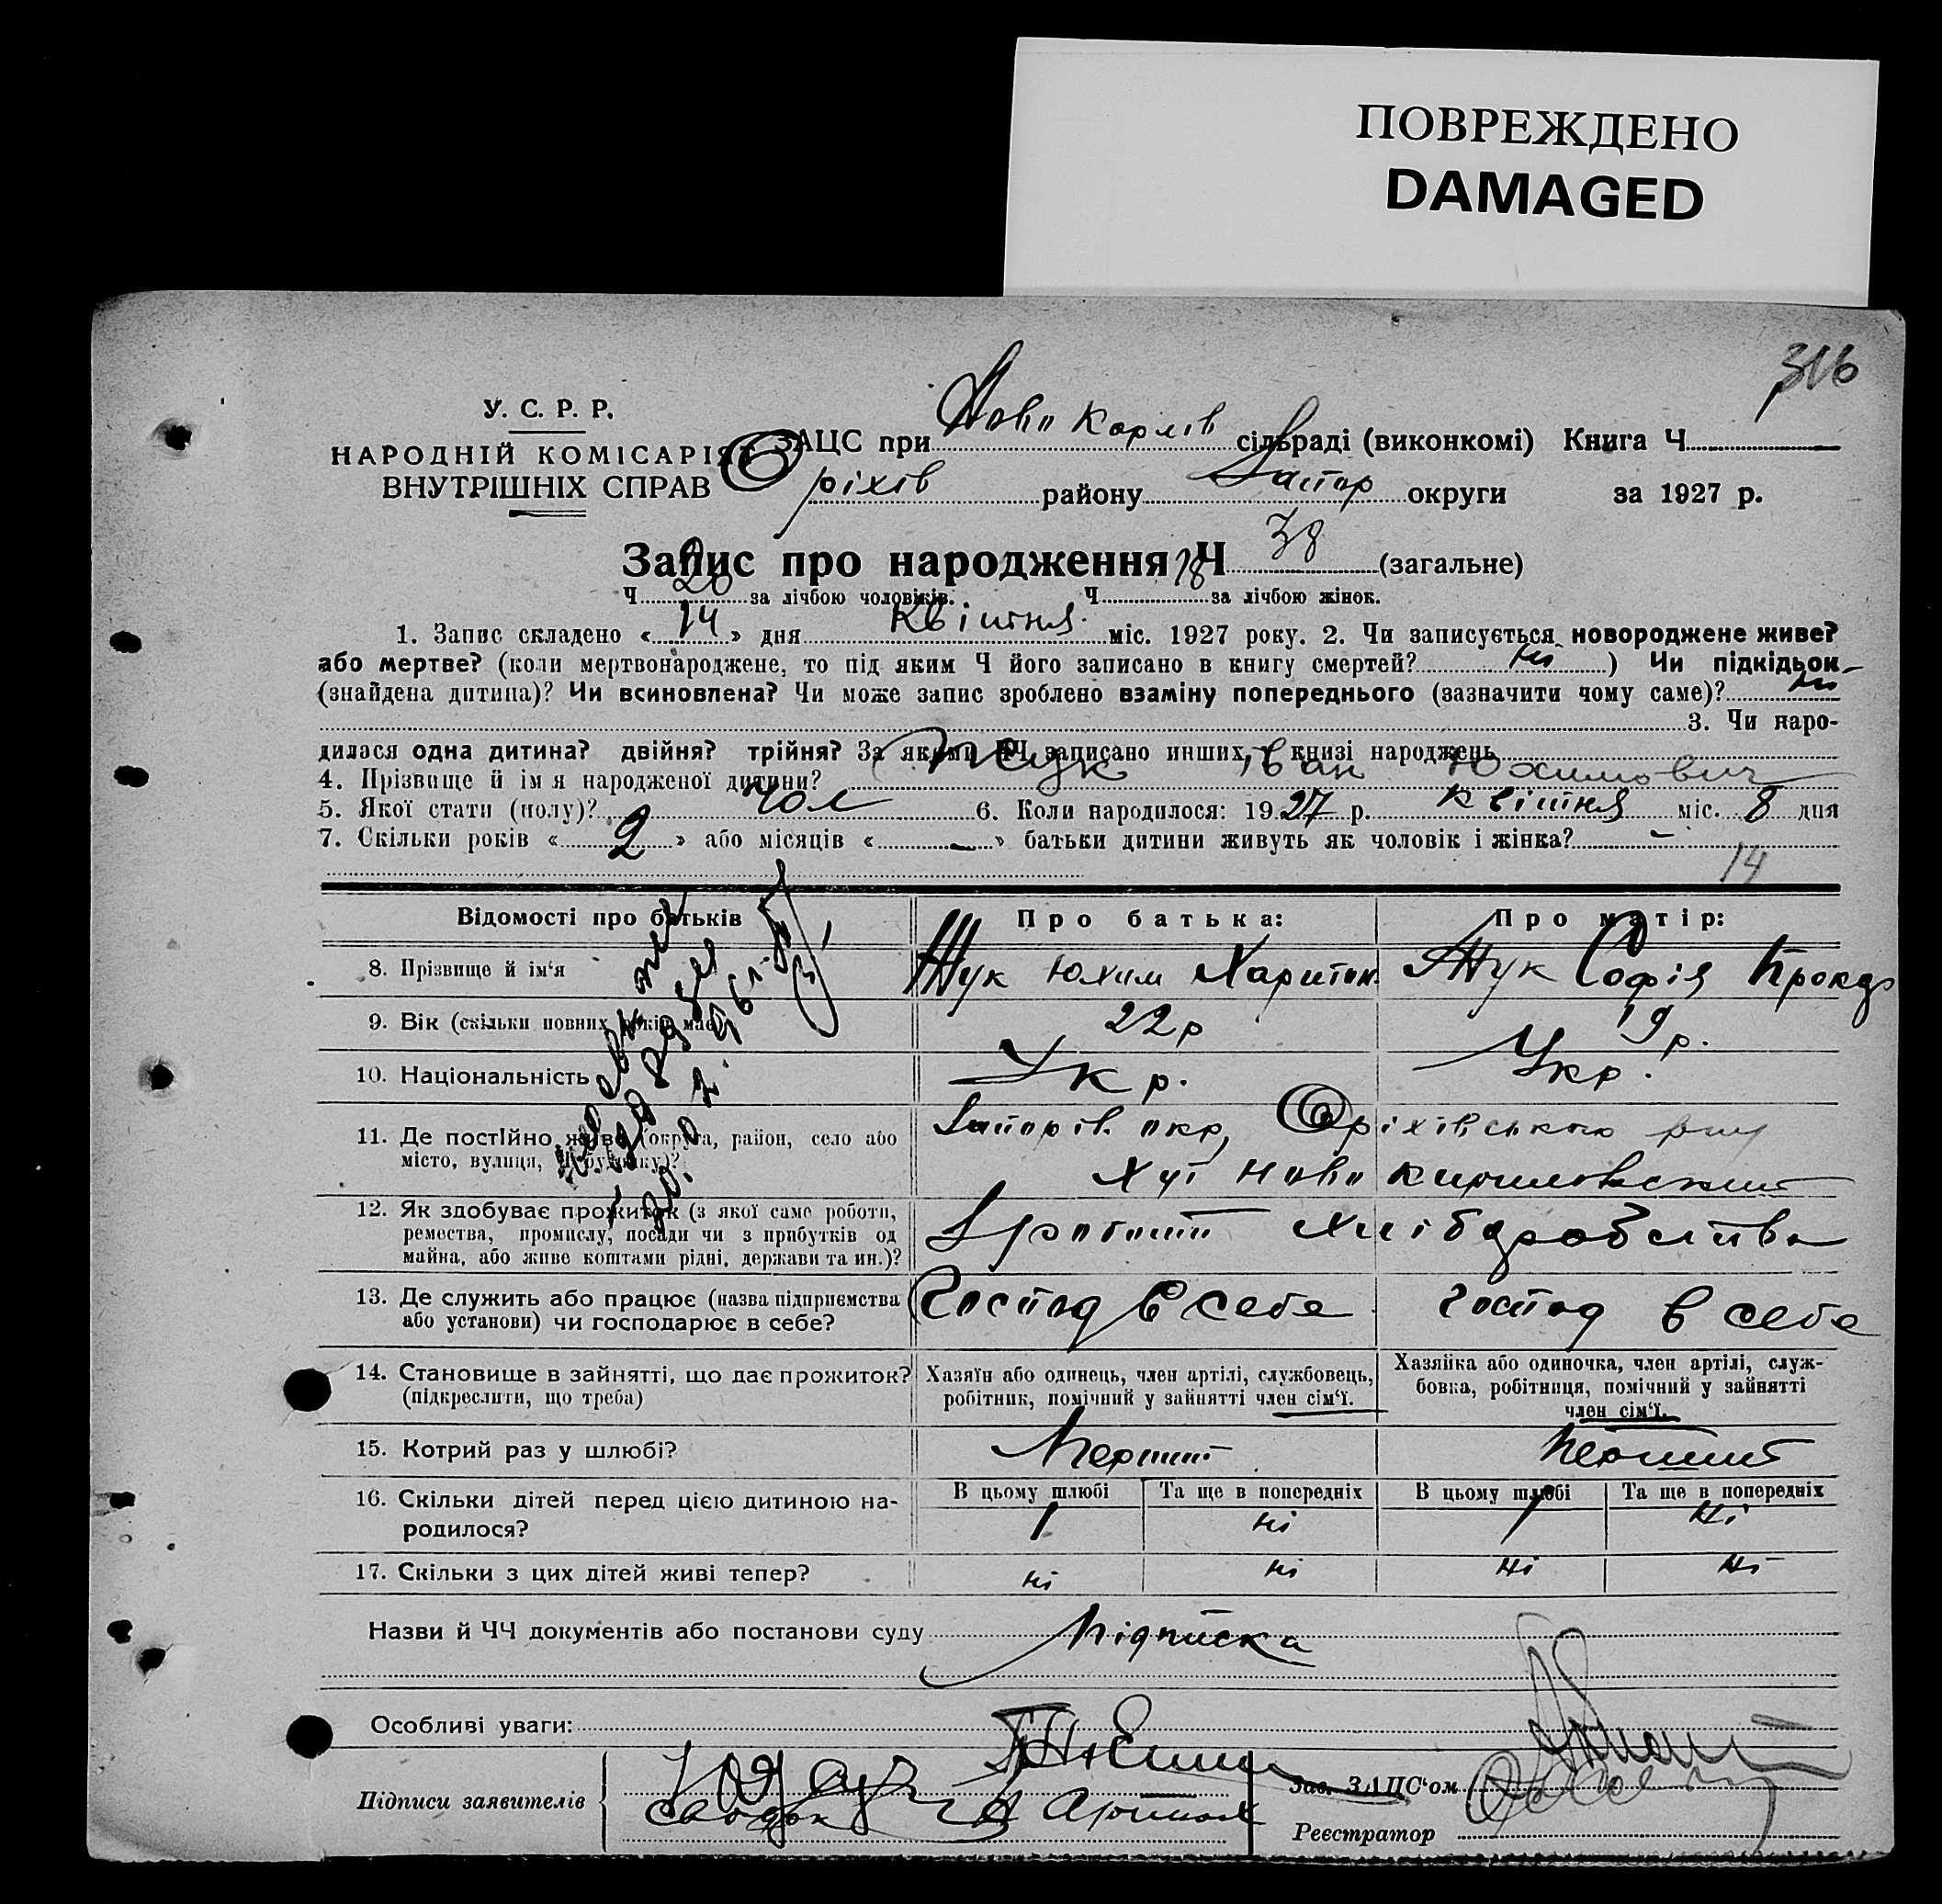 ПОВРЕЖДЕНО
DAMAGED
316
У. С. Р. Р.
НАРОДНІЙ КОМІСАРІЯТ
ВНУТРІШНІХ СПРАВ
ЗАЦС при Ново Карлів сільраді (виконкомі) Книга Ч
Оріхів району Запор округи за 1927 р.
Запис про народження Ч 38 (загальне)
Ч 20 за лічбою чоловіків. Ч 18 за лічбою жінок.
1. Запис складено « 14 » дня Квітня міс. 1927 року. 2. Чи записується новороджене живе?
або мертве? (коли мертвонароджене, то під яким Ч його записано в книгу смертей? ні ) Чи підкідьок
(знайдена дитина)? Чи всиновлена? Чи може запис зроблено взаміну попереднього (зазначити чому саме)? ні
3. Чи наро-
дилася одна дитина? двійня? трійня? За якими ЧЧ записано инших у книзі народжень
4. Прізвище й ім я народженої дитини? Жук Іван Юхимович
5. Якої стати (полу)? чол 6. Коли народилося: 19 27 р. квітня міс. 8 дня
7. Скільки років « 2 » або місяців « – » батьки дитини живуть як чоловік і жінка? –
14
Відомості про батьків Про батька: Про матір:
8. Прізвище й ім'я Жук Юхим Харитон. Жук Софія
9. Вік (скільки повних років має) 22 р 19 р.
10. Національність Укр. Укр.
11. Де постійно живе (округа, район, село або Запорів. окр, Оріхівського
місто, вулиця, Ч будинку)? Хут Ново
12. Як здобуває прожиток (з якої саме роботи, хліборобства
ремества, промислу, посади чи з прибутків од
майна, або живе коштами рідні, держави та ин.)?
13. Де служить або працює (назва підприємства Господ в себе господ в себе
або установи) чи господарює в себе?
14. Становище в зайнятті, що дає прожиток? Хазяїн або одинець, член артілі, службовець, Хазяйка або одиночка, член артілі, служ-
(підкреслити, що треба) робітник, помічний у зайнятті член сім'ї. бовка, робітниця, помічний у зайнятті
член сім'ї.
15. Котрий раз у шлюбі? Перший Перший
16. Скільки дітей перед цією дитиною на- В цьому шлюбі Та ще в попередніх В цьому шлюбі Та ще в попередніх
родилося? 1 ні 1 ні
17. Скільки з цих дітей живі тепер? ні ні ні ні
Назви й ЧЧ документів або постанови суду Підписка
Особливі уваги:
Підписи заявителів
Зав. ЗАЦС'ом
Реєстратор